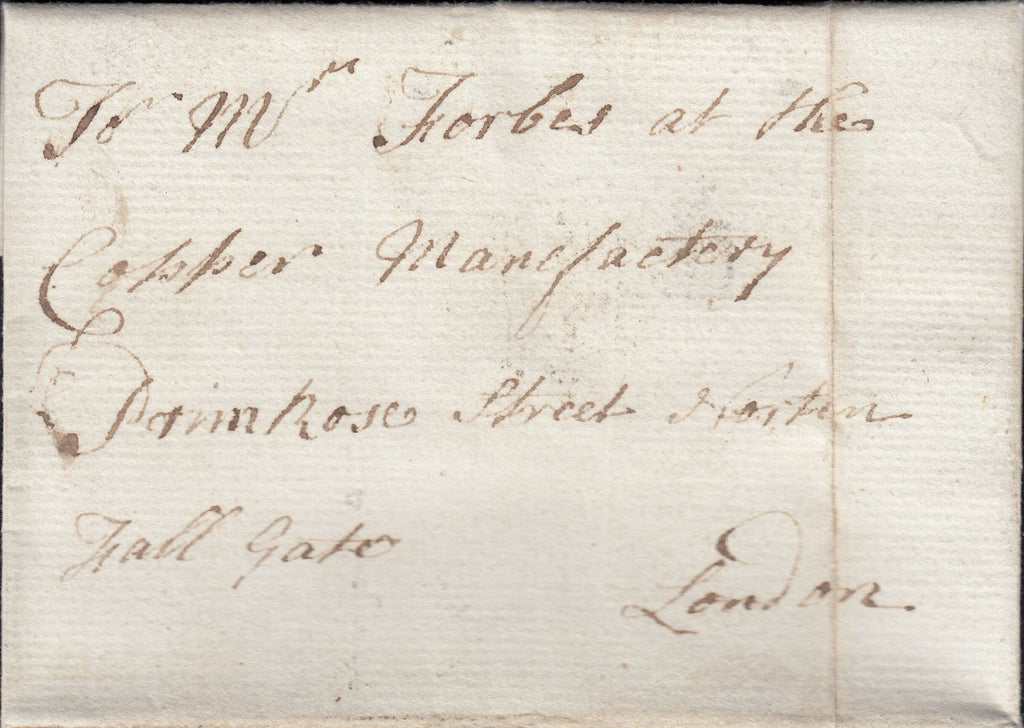 To Mr Forbes at the
Copper Manefactery
PrimRose Street Norten
Fall Gate
London